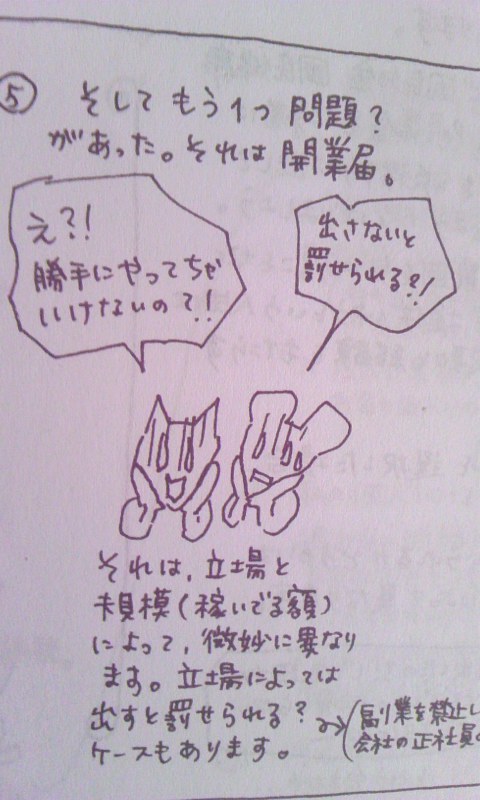 ⑤ そしてもう1つ問題?
があった。それは開業届。
え?!
勝手にやってちゃ
いけないの?!
出さないと
罰せられる?!
それは、立場と
規模(稼いでる額)
によって、微妙に異なり
ます。立場によっては
出すと罰せられる?
ケースもあります。
(副業を禁止し
会社の正社員